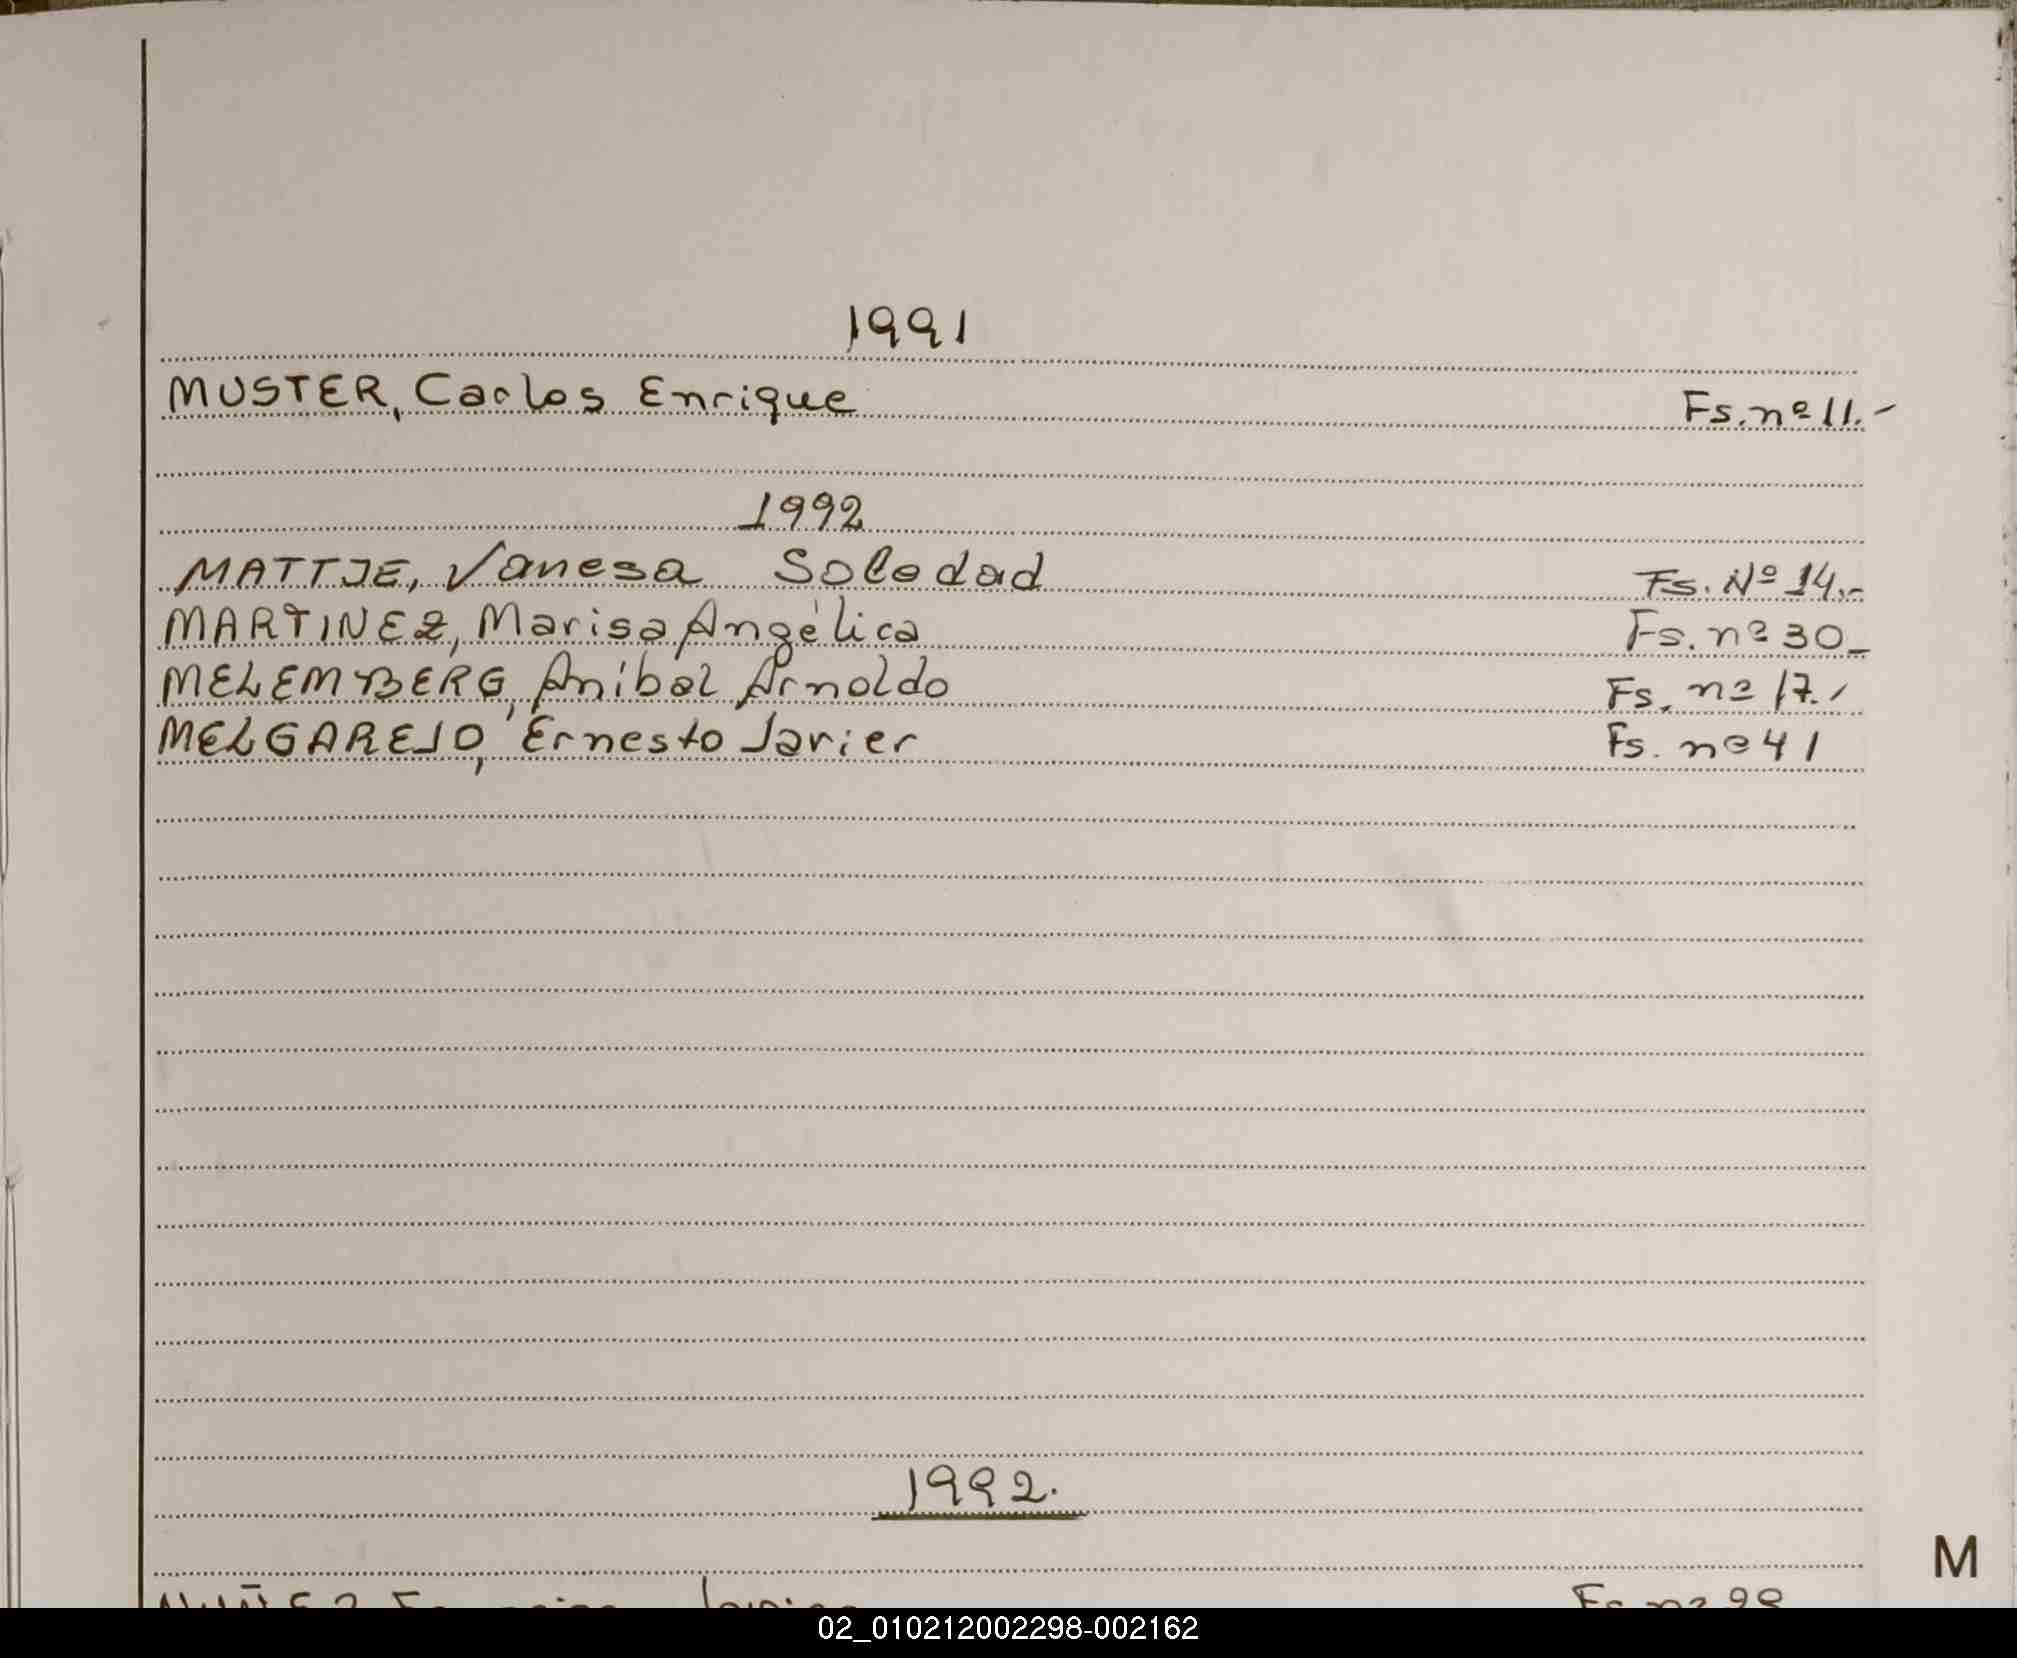 1991
MUSTER, Carlos Enrique Fs. nº 11.-
1992
MATTJE, Vanesa Soledad Fs. Nº 14.-
MARTINEZ, Marisa Angélica Fs. nº 30_
MELEMBERG, Aníbal Arnoldo Fs. nº 17.-
MELGAREJO, Ernesto Javier Fs. nº 41
1992.
M
NUÑEZ Fs. nº
02_010212002298-002162